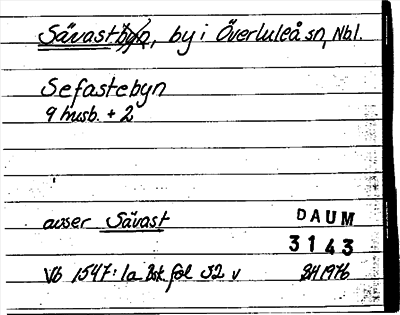 Sävastbyn, by i Överluleå sn, Nbl.
Sefastebyn
9 husb. + 2
avser Sävast
DAUM
3143
Vb 1547:1a Bsk fol 52 v
1976